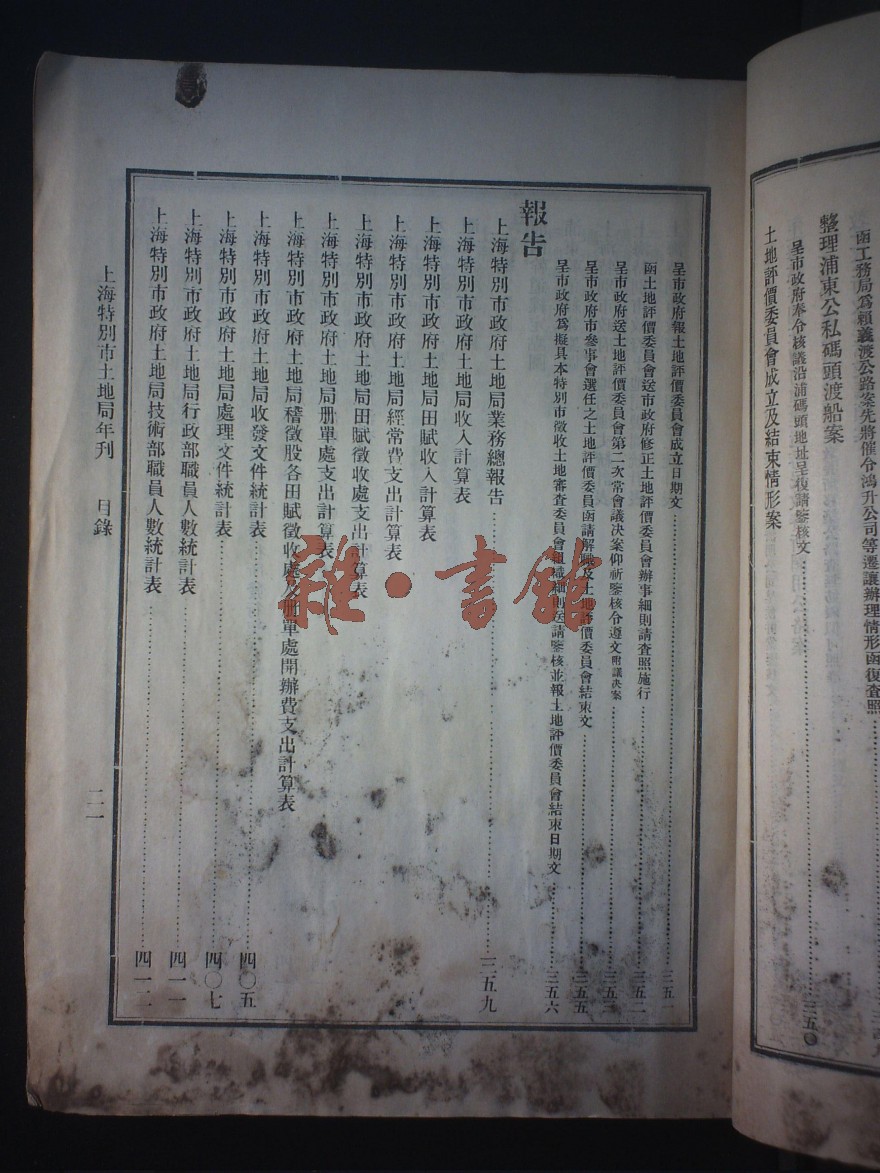 函工務局爲賴義渡公路案先將催令鴻升公司等遷讓辦理情形函復查照
整理浦東公私碼頭渡船案
呈市政府奉令核議沿浦碼頭地址呈復請鑒核文 三五〇
土地評價委員會成立及結束情形案
呈市政府報土地評價委員會成立日期文 三五一
函土地評價委員會送市政府修正土地評價委員會辦事細則請查照施行 三五二
呈市政府送土地評價委員會第二次常會議決案仰祈鑒核令遵文附議決案
呈市政府市參事會選任之土地評價委員函請解職及土地評價委員會結束文 三五五
呈市政府爲擬具本特別市徵收土地審查委員會組織細則送請鑒核並報土地評價委員會結束日期文 三五六
報告
上海特別市政府土地局業務總報告 三五九
上海特別市政府土地局收入計算表
上海特別市政府土地局田賦收入計算表
上海特別市政府土地局經常費支出計算表
上海特別市政府土地局田賦徵收處支出計算表
上海特別市政府土地局册單處支出計算表
上海特別市政府土地局稽徵股各田賦徵收處及册單處開辦費支出計算表
上海特別市政府土地局收發文件統計表 四〇五
上海特別市政府土地局處理文件統計表 四〇七
上海特別市政府土地局行政部職員人數統計表 四一一
上海特別市政府土地局技術部職員人數統計表 四一二
上海特別市土地局年刊 目錄 二一
雜·書館